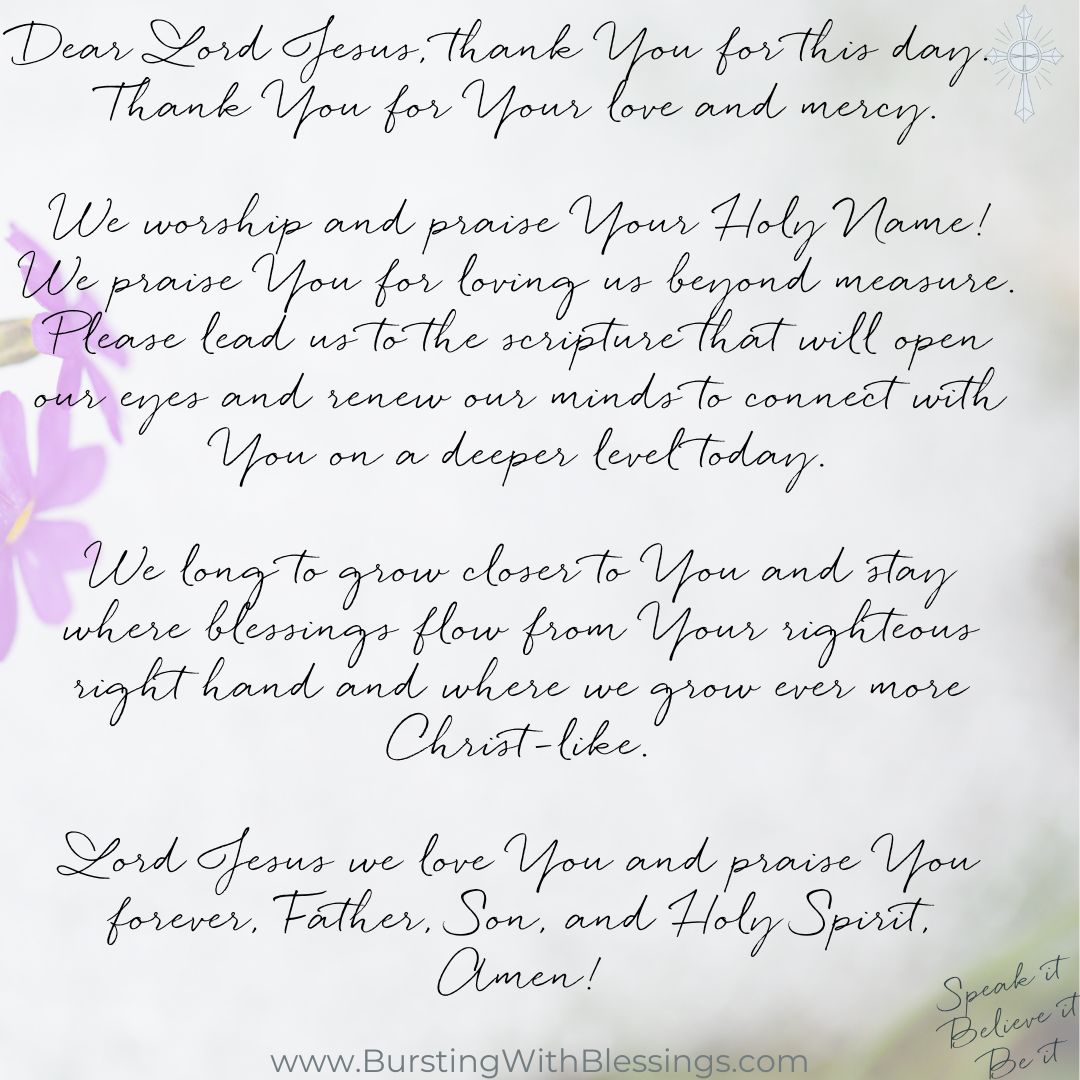 Dear Lord Jesus, thank You for this day.
Thank You for Your love and mercy.
We worship and praise Your Holy Name!
We praise You for loving us beyond measure.
Please lead us to the scripture that will open
our eyes and renew our minds to connect with
You on a deeper level today.
We long to grow closer to You and stay
where blessings flow from Your righteous
right hand and where we grow ever more
Christ-like.
Lord Jesus we love You and praise You
forever, Father, Son, and Holy Spirit,
Amen!
Speak it
Believe it
Be it
www.BurstingWithBlessings.com